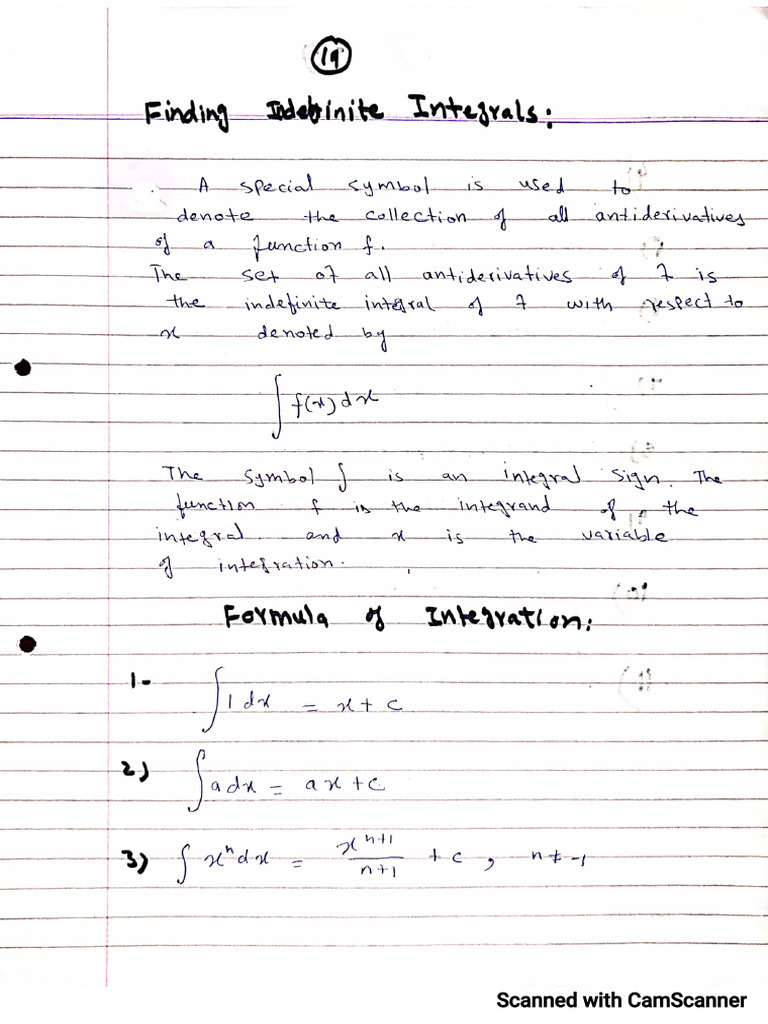 19
Finding Indefinite Integrals:
A special symbol is used to
denote the collection of all antiderivatives
of a function f.
The set of all antiderivatives of f is
the indefinite integral of f with respect to
x denoted by
∫ f(x) dx
The symbol ∫ is an integral sign. The
function f is the integrand of the
integral. and x is the variable
of integration.
Formula of Integration:
1- ∫ 1 dx = x + c
2) ∫ a dx = ax + c
3) ∫ xⁿ dx = xⁿ⁺¹/n+1 + c , n ≠ -1
Scanned with CamScanner